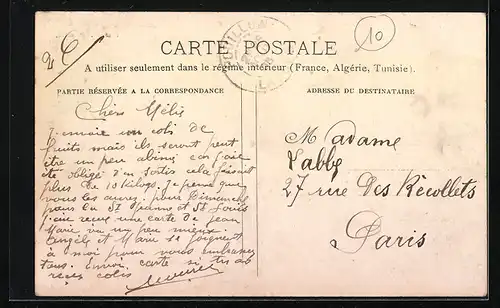 2 €
10
CARTE POSTALE
A utiliser seulement dans le régime intérieur (France, Algérie, Tunisie).
PARTIE RÉSERVÉE A LA CORRESPONDANCE
ADRESSE DU DESTINATAIRE
Chers
J envoie un coli de
fruits mais ils seront peut
être un peu abimé car
été obligé d'en sortir cela faisait
plus de 10 kilogs je pense que
vous les aurez pour Dimanche
St
j'ai reçu une carte de Jean
Marie va un peu mieux
Angele et Marie se joignent
à moi pour vous embrasser
tous. Envoi carte si tu as
reçu colis
Madame
Labbe
27 rue des Récollets
Paris